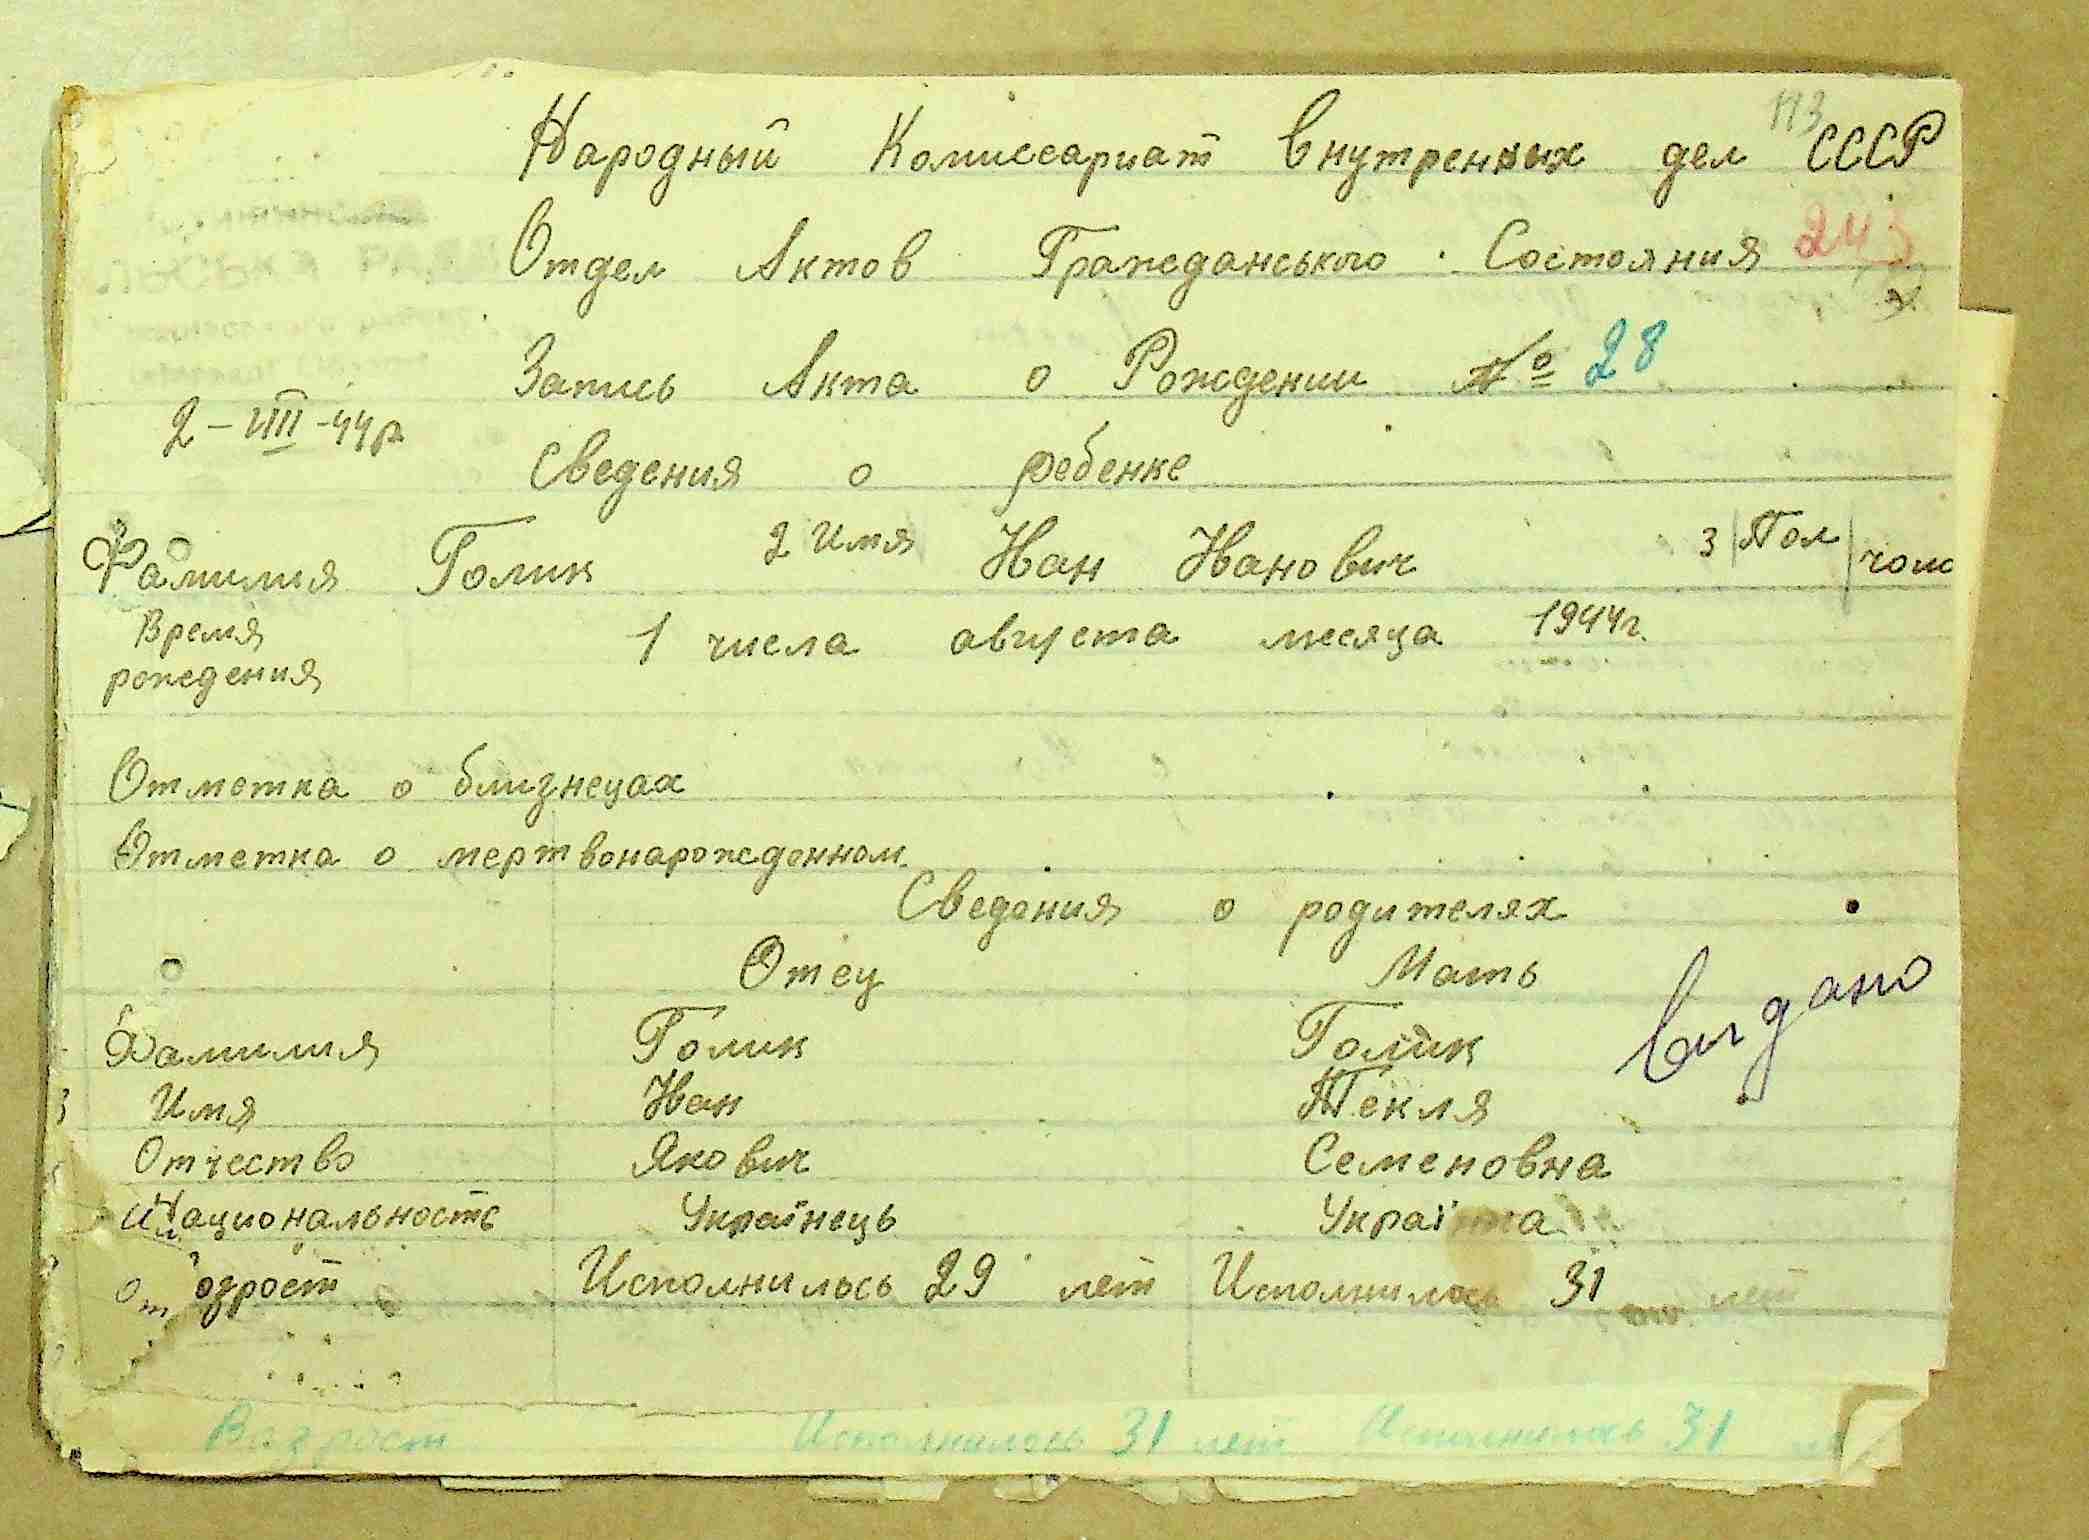 113
Народный Комиссариат Внутренных дел СССР
Отдел Актов Гражданського Состояния 243
Запись Акта о Рождении № 28
2-VIII-44р
Сведения о ребенке
Фамилия Голик 2 Имя Иван Иванович 3 Пол чоло
Время рождения 1 числа августа месяца 1944г.
Отметка о близнецах
Отметка о мертвонарожденном
Сведения о родителях
Отец Мать
Видано
Фамилия Голик Голик
Имя Иван Текля
Отчество Якович Семеновна
Национальность Українець Українка
озрост Исполнилось 29 лет Исполнилось 31 лет
Возрост Исполнилось 31 лет Исполнилось 31